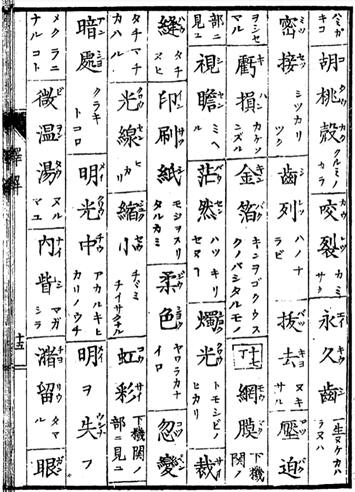 ハミガキコ 胡桃殻 クルミノカラ 咬裂 カミサク 永久齒 生ヌケカハラヌハ
密接 ミツカリツク 齒列 ハノナラビ 抜去 ヌキサル 壓迫
ヲシセマル 虧損 カケソンズル 金箔 キンヲゴクウスクノバシタルモノ 十七丁 網膜 下機関
部ニ見ユ 視瞻 ミヘ 茫然 ハツキリセヌ 燭光 トモシビノヒカリ 裁
縫 タチヌヒ 印刷紙 モジヲスリタルカミ 柔色 ヤワラカナイロ 忽變
タチマチカハル 光線 ヒカリ 縮小 チヾミチイサクナル 虹彩 下機関ノ部ニ見ユ
暗處 クラキトコロ 明光中 アカルキヒカリノウチ 明ヲ失フ
メクラニナルコト 微温湯 ヌルマユ 内眥 マガシラ 瀦留 タマル 眼
譯解 十五